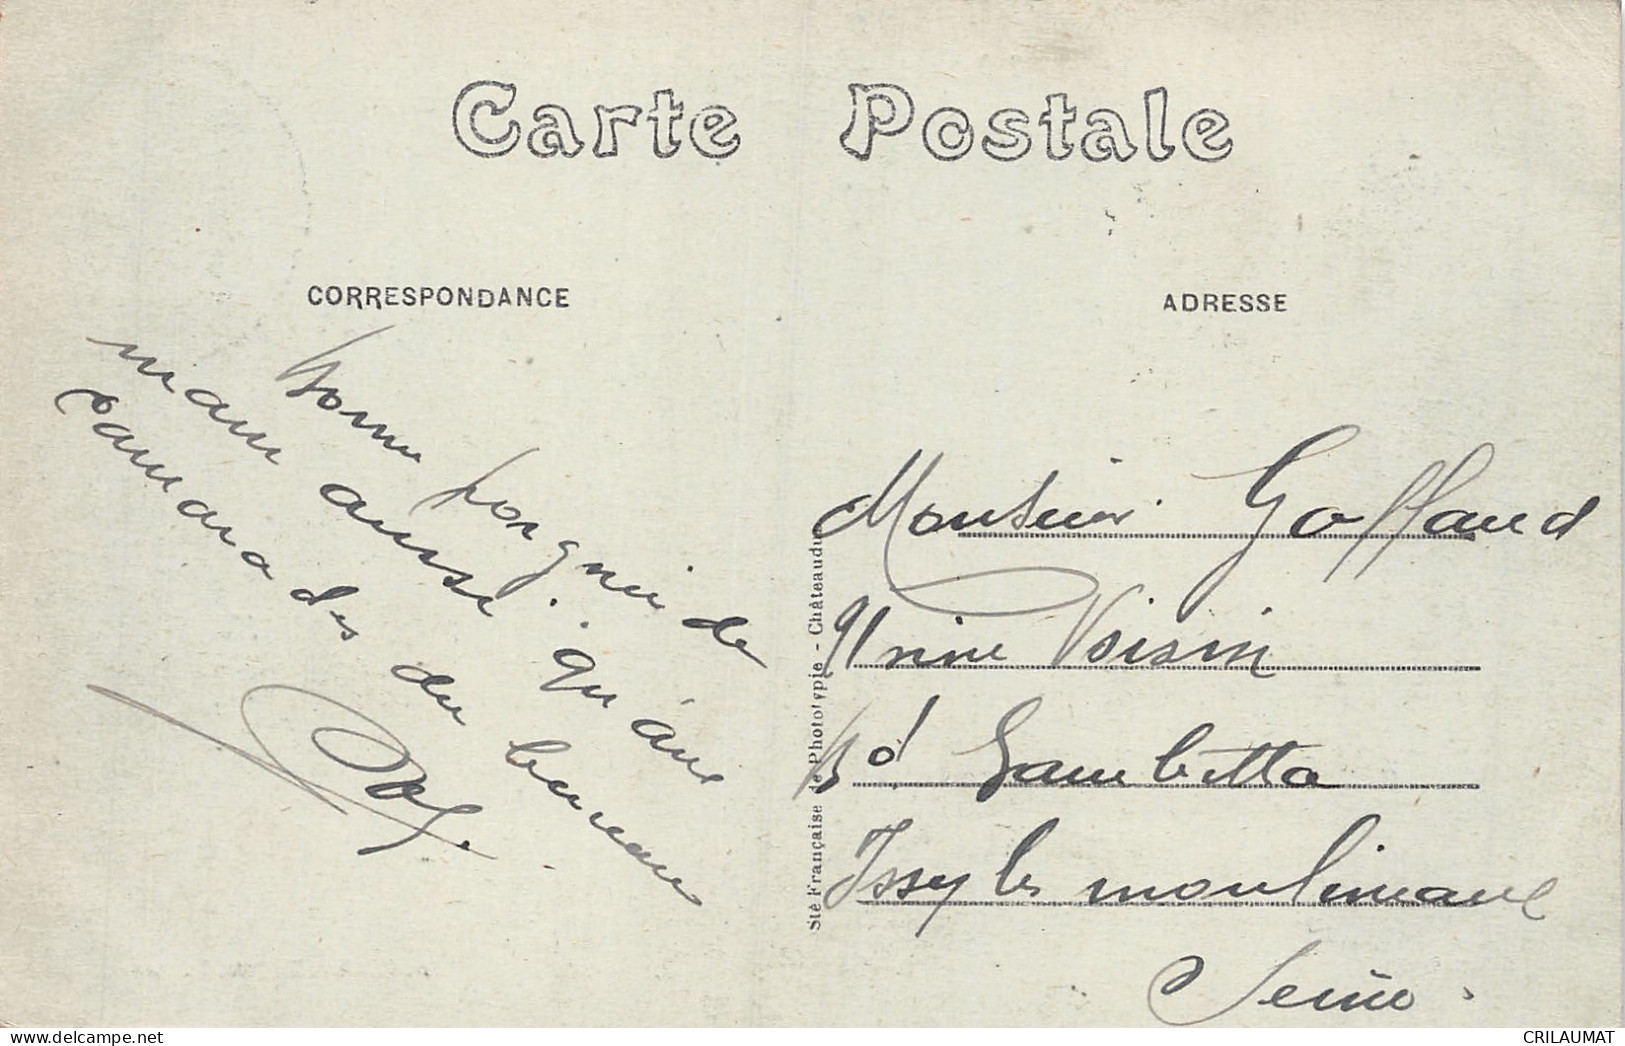 Carte Postale
CORRESPONDANCE
bonne poignée de
main ainsi qu'aux
camarades du bureau
ADRESSE
Monsieur Goffaud
Usine Voisin
Bd Gambetta
Issy les moulineaux
Seine.
Sté Française de Phototypie - Châteaudun
CRILAUMAT